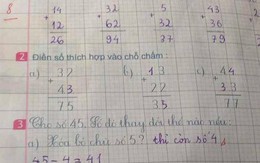 8 + 14 + 32 + 5 + 43
12 62 32 36
26 94 37 79
2 Điền số thích hợp vào chỗ chấm:
a) 32 b) 13 c) 44
+ 43 + 22 + 33
75 35 77
3 Cho số 45. Số đó thay đổi thế nào nếu:
a) Xóa bỏ chữ số 5? thì còn số 4
45 - 4 = 41